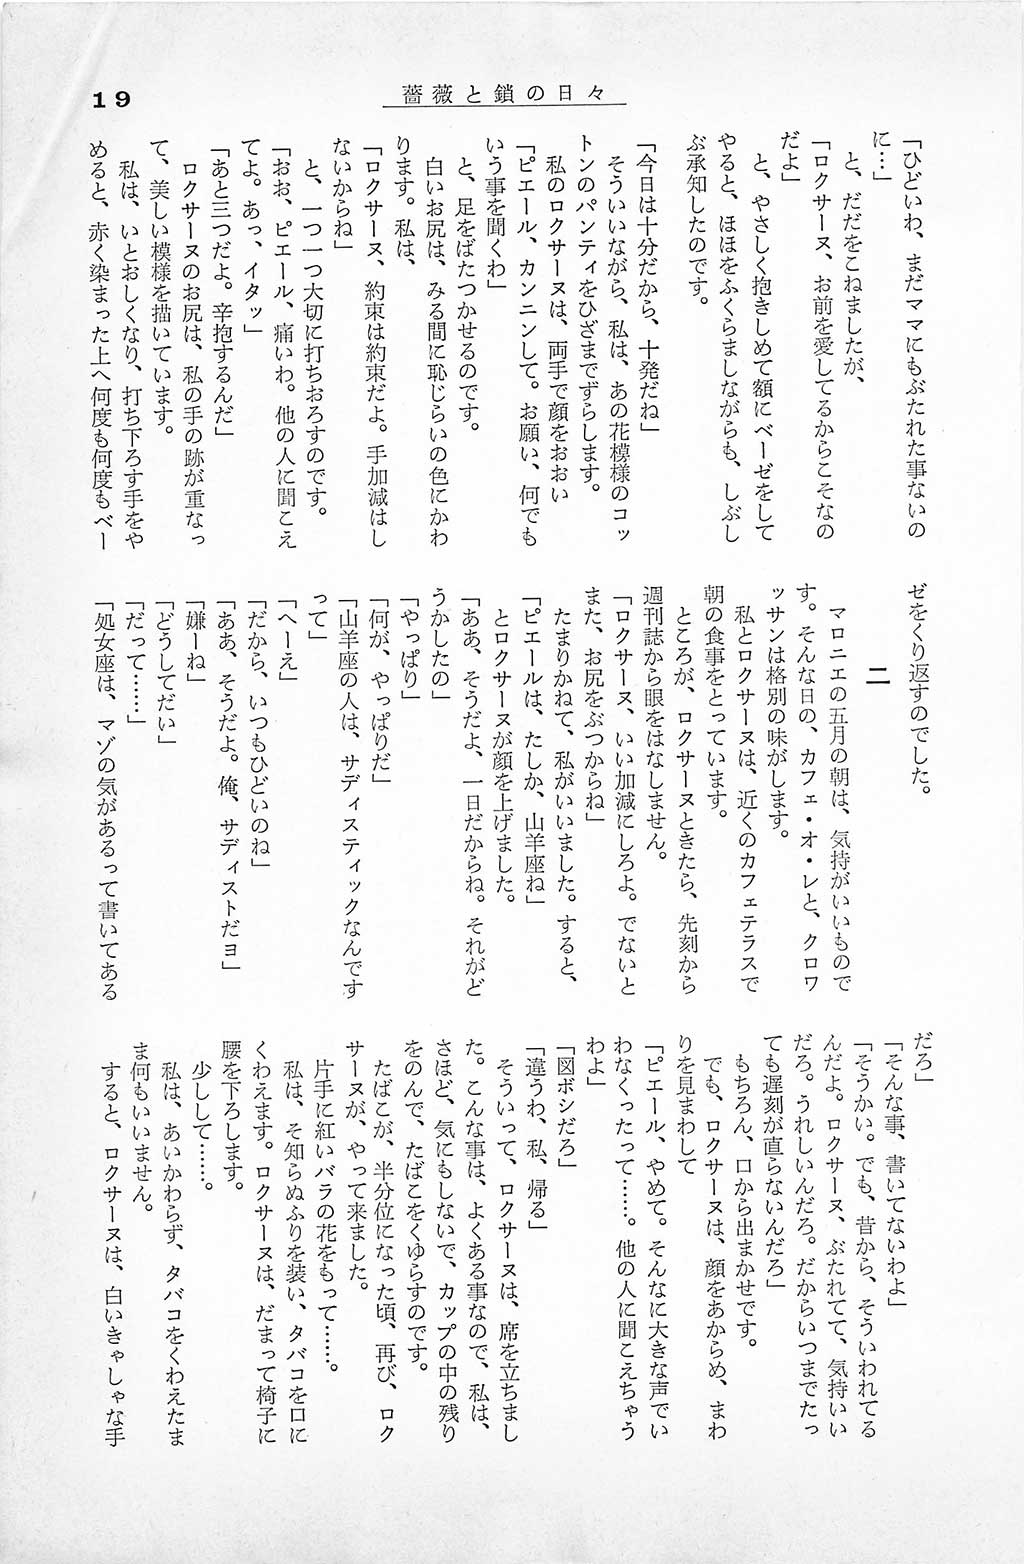 19
薔薇と鎖の日々
「ひどいわ、まだママにもぶたれた事ないの
に…」
と、だだをこねましたが、
「ロクサーヌ、お前を愛してるからこそなの
だよ」
と、やさしく抱きしめて額にベーゼをして
やると、ほほをふくらましながらも、しぶし
ぶ承知したのです。
「今日は十分だから、十発だね」
そういいながら、私は、あの花模様のコッ
トンのパンティをひざまでずらします。
私のロクサーヌは、両手で顔をおおい
「ピエール、カンニンして。お願い、何でも
いう事を聞くわ」
と、足をばたつかせるのです。
白いお尻は、みる間に恥じらいの色にかわ
ります。私は、
「ロクサーヌ、約束は約束だよ。手加減はし
ないからね」
と、一つ一つ大切に打ちおろすのです。
「おお、ピエール、痛いわ。他の人に聞こえ
てよ。あっ、イタッ」
「あと三つだよ。辛抱するんだ」
ロクサーヌのお尻は、私の手の跡が重なっ
て、美しい模様を描いています。
私は、いとおしくなり、打ち下ろす手をや
めると、赤く染まった上へ何度も何度もベー
ゼをくり返すのでした。
二
マロニエの五月の朝は、気持がいいもので
す。そんな日の、カフェ・オ・レと、クロワ
ッサンは格別の味がします。
私とロクサーヌは、近くのカフェテラスで
朝の食事をとっています。
ところが、ロクサーヌときたら、先刻から
週刊誌から眼をはなしません。
「ロクサーヌ、いい加減にしろよ。でないと
また、お尻をぶつからね」
たまりかねて、私がいいました。すると、
「ピエールは、たしか、山羊座ね」
とロクサーヌが顔を上げました。
「ああ、そうだよ、一日だからね。それがど
うかしたの」
「やっぱり」
「何が、やっぱりだ」
「山羊座の人は、サディスティックなんです
って」
「へーえ」
「だから、いつもひどいのね」
「ああ、そうだよ。俺、サディストだヨ」
「嫌ーね」
「どうしてだい」
「だって……」
「処女座は、マゾの気があるって書いてある
だろ」
「そんな事、書いてないわよ」
「そうかい。でも、昔から、そういわれてる
んだよ。ロクサーヌ、ぶたれてて、気持いい
だろ。うれしいんだろ。だからいつまでたっ
ても遅刻が直らないんだろ」
もちろん、口から出まかせです。
でも、ロクサーヌは、顔をあからめ、まわ
りを見まわして
「ピエール、やめて。そんなに大きな声でい
わなくったって……。他の人に聞こえちゃう
わよ」
「図ボシだろ」
「違うわ、私、帰る」
そういって、ロクサーヌは、席を立ちまし
た。こんな事は、よくある事なので、私は、
さほど、気にもしないで、カップの中の残り
をのんで、たばこをくゆらすのです。
たばこが、半分位になった頃、再び、ロク
サーヌが、やって来ました。
片手に紅いバラの花をもって……。
私は、そ知らぬふりを装い、タバコを口に
くわえます。ロクサーヌは、だまって椅子に
腰を下ろします。
少しして……。
私は、あいかわらず、タバコをくわえたま
ま何もいいません。
すると、ロクサーヌは、白いきゃしゃな手